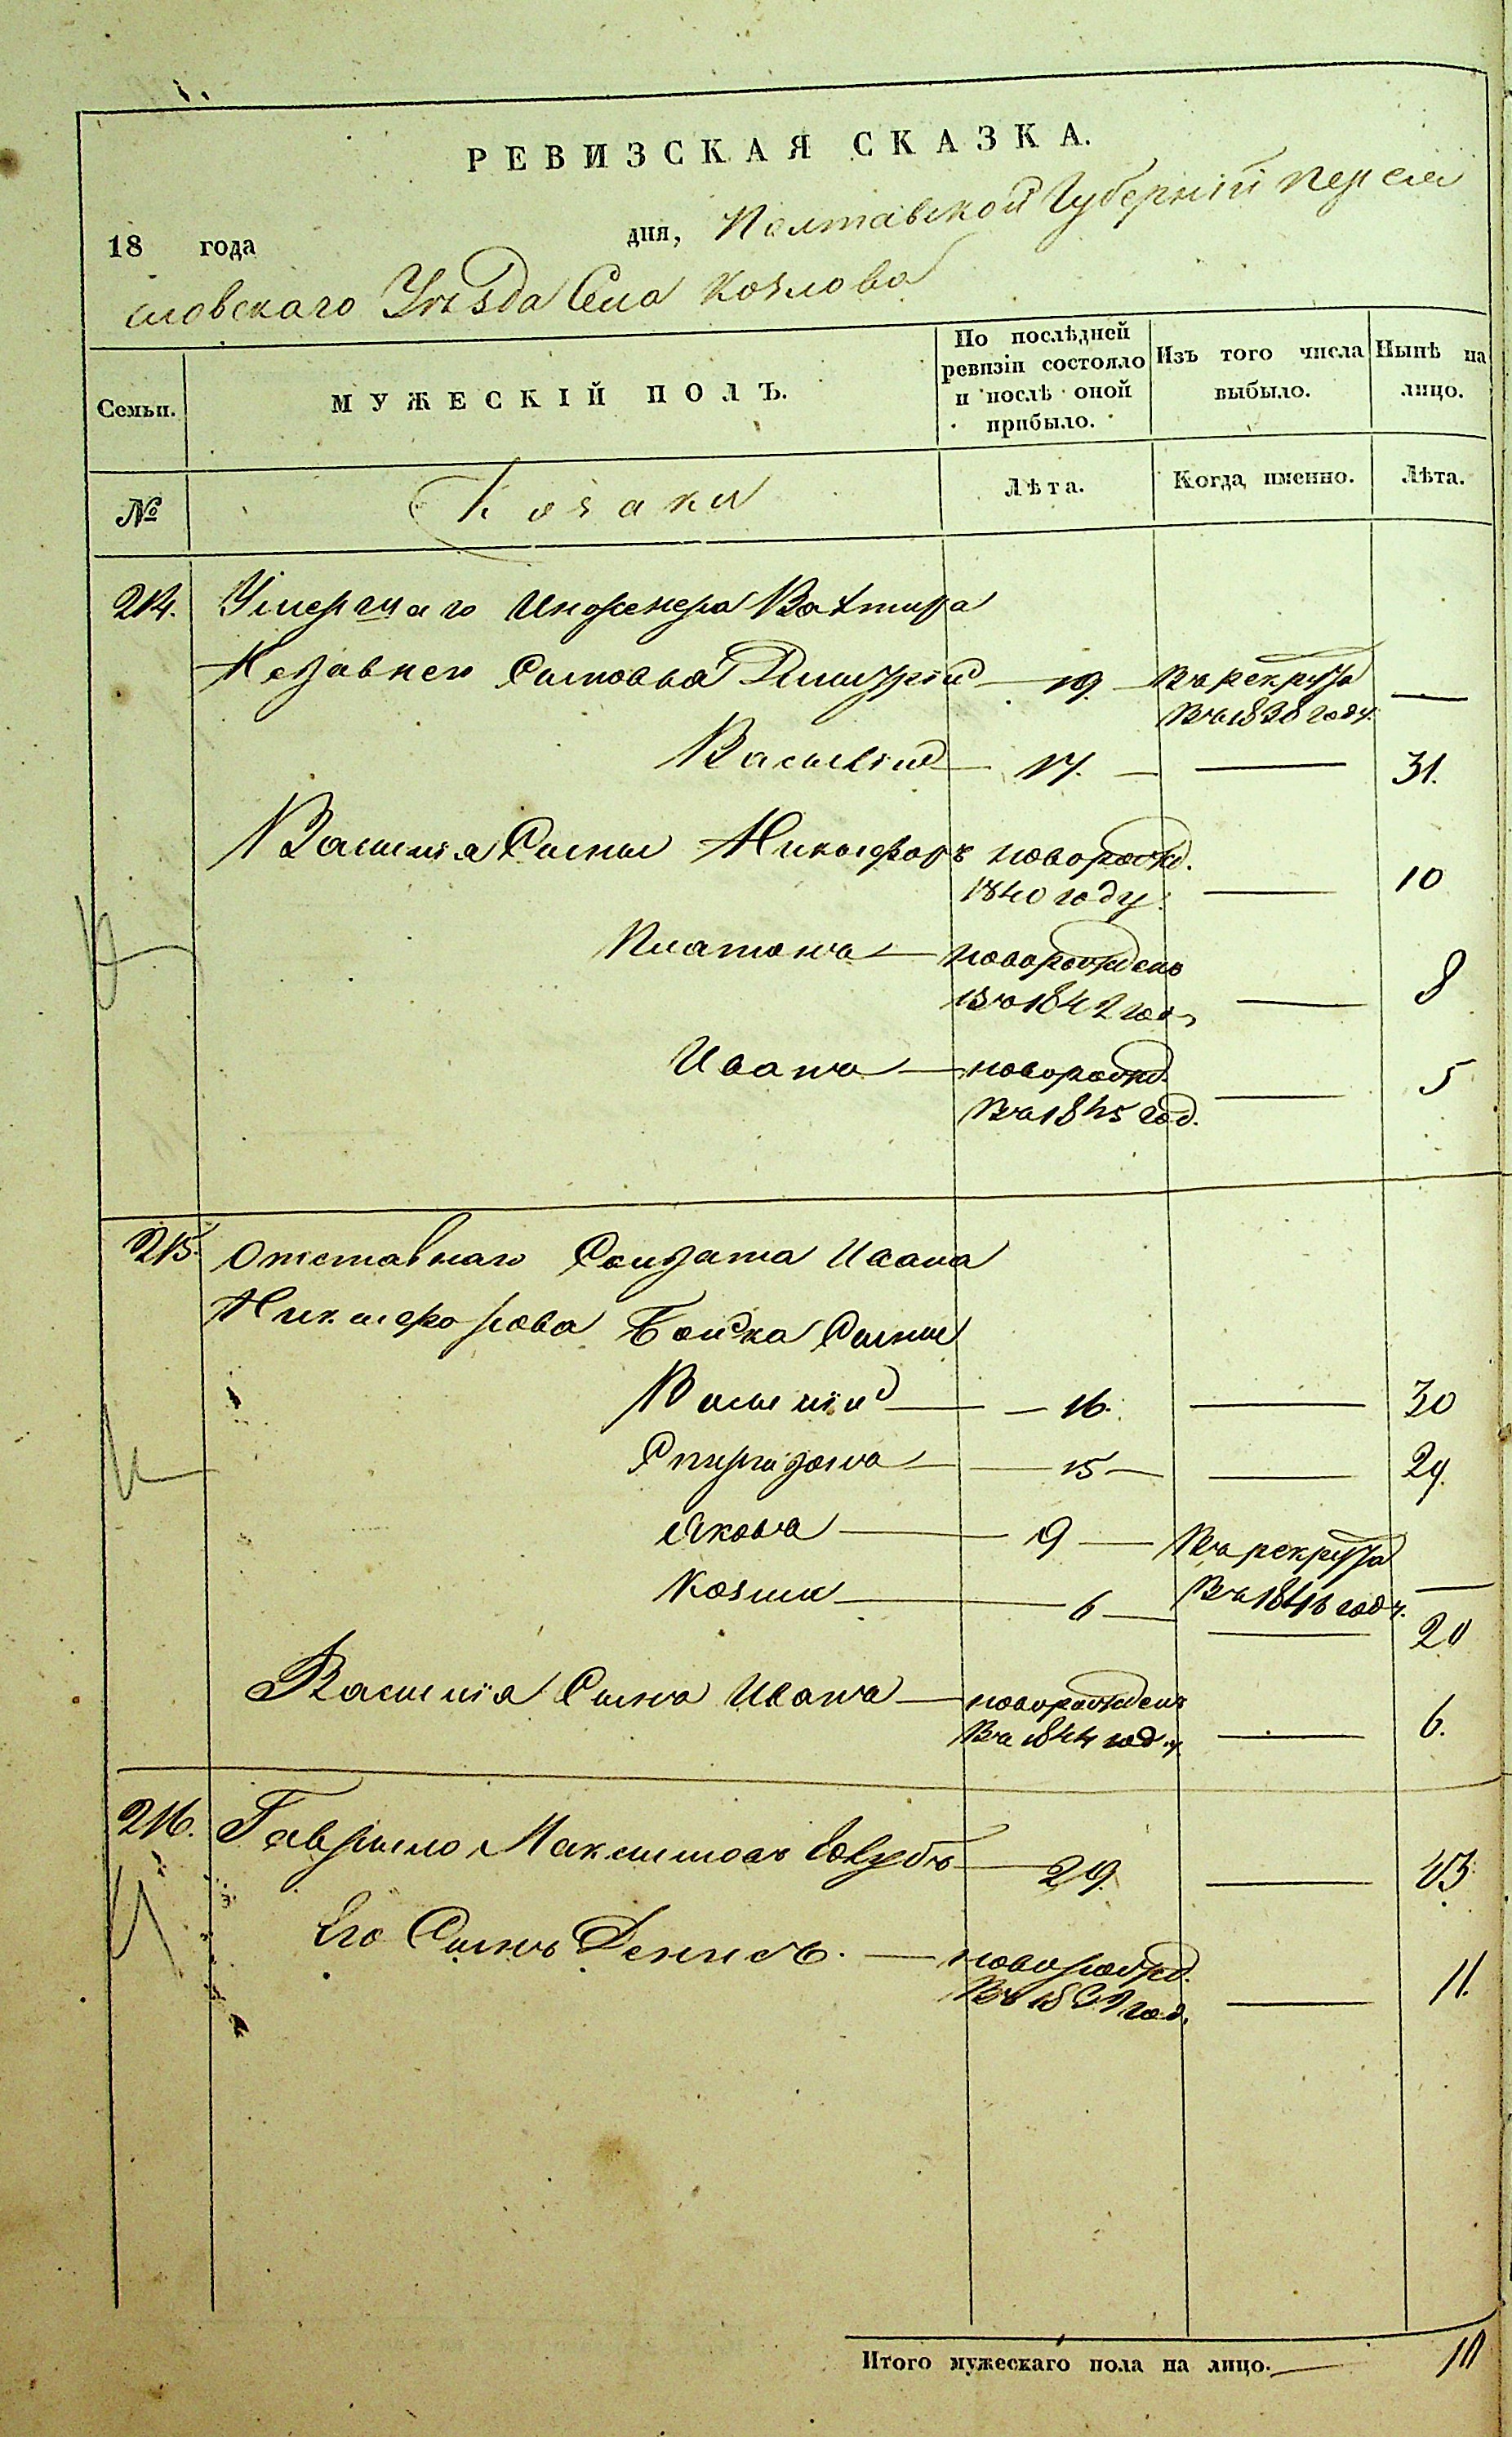 РЕВИЗСКАЯ СКАЗКА.
18 года дня, Полтавской Губерніи Переяс
лавскаго Уѣзда Села Козлова
Семьи. МУЖЕСКІЙ ПОЛЪ. По послѣдней ревизіи состояло и послѣ оной прибыло. Изъ того числа выбыло. Нынѣ на лицо.
№ Козаки Лѣта. Когда именно. Лѣта.
214. Умершаго
сыновья Дмитрій 19. Въ рекруты
въ 1838 году.
Василій 17. 31.
Василія сыны Никифоръ новорожд.
1840 году. 10
Платонъ новорожденъ
въ 1842 год 8
Иванъ новорожд.
въ 1845 год. 5
215. Отставнаго Солдата Ивана
Никифорова Бойка сыны
Василій 16. 30
Спиридонъ 15 29.
Яковъ 9 Въ рекруты
въ 1846 году.
Козма 6 20
Василія сынъ Иванъ новорожденъ
въ 1844 году 6.
216. Гаврило Максимовъ 29. 43.
Его Сынъ Денисъ. новорожд.
въ 1839 год. 11.
Итого мужескаго пола на лицо. 10